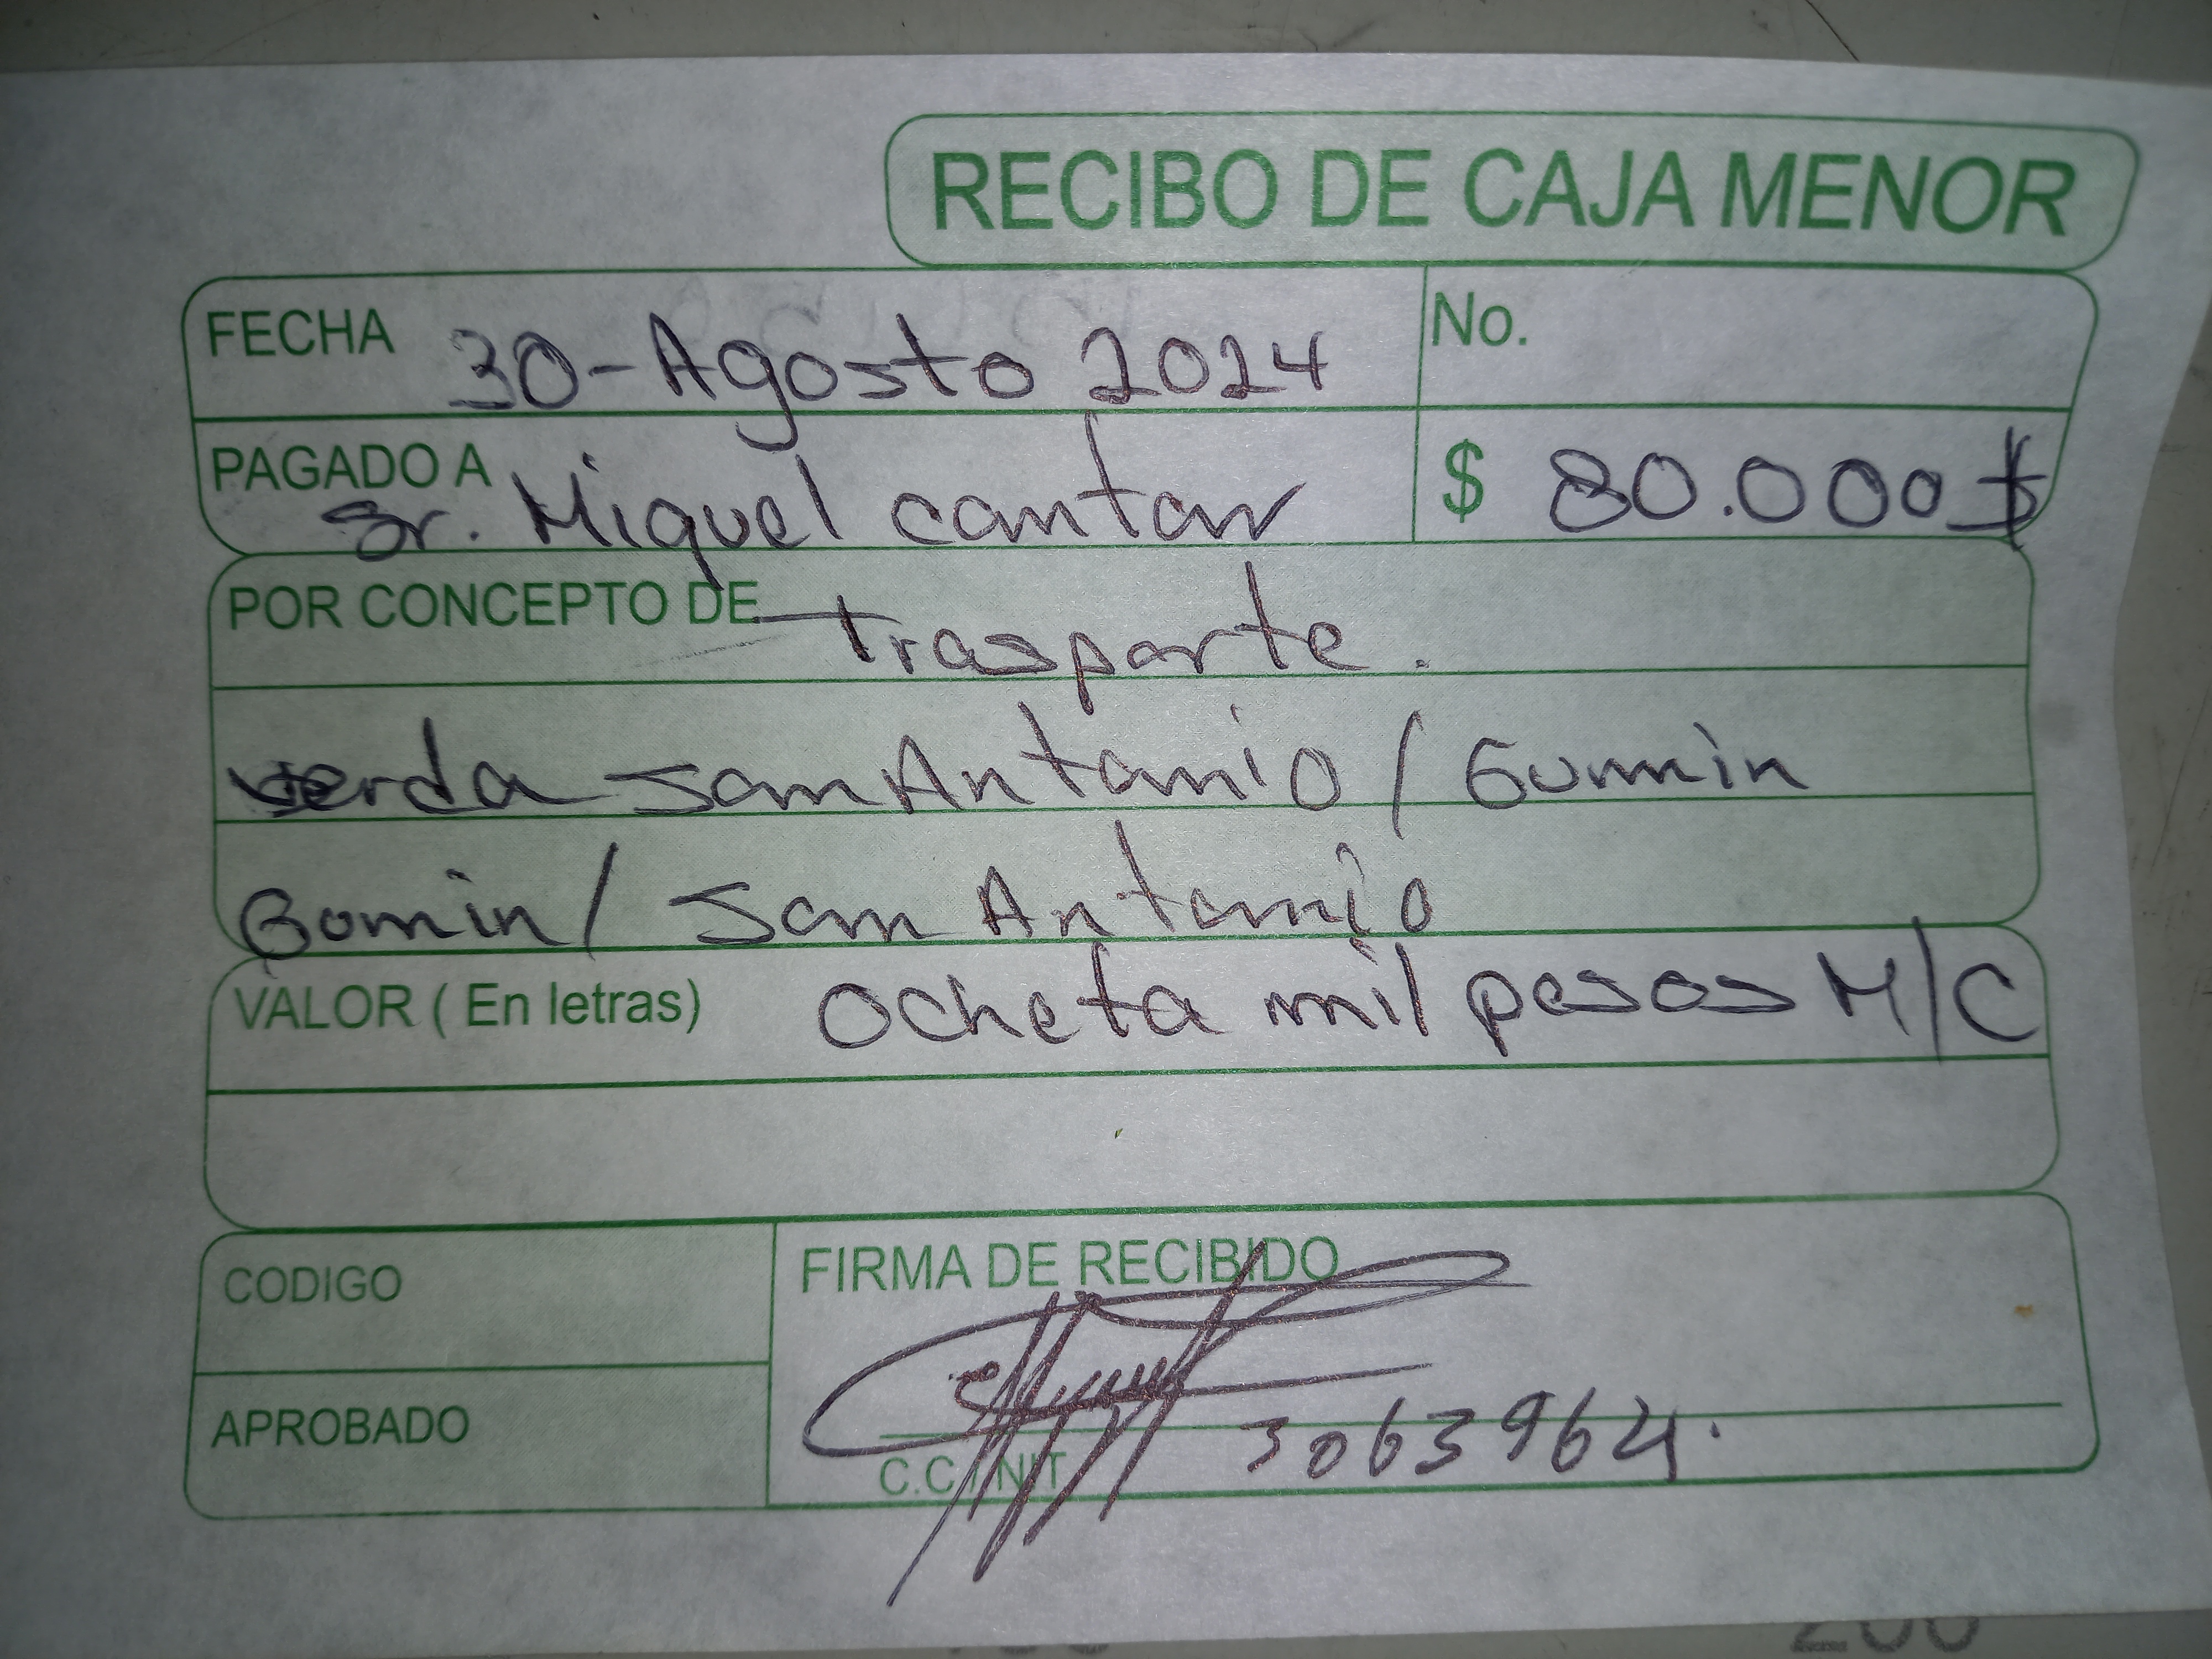 RECIBO DE CAJA MENOR
FECHA 30-Agosto 2024 No.
PAGADO A Sr. Miguel cantor $ 80.000 $
POR CONCEPTO DE trasporte.
verda San Antonio / Gomin
Gomin / San Antonio
VALOR ( En letras) ocheta mil pesos M/C
CODIGO
FIRMA DE RECIBIDO
APROBADO
C.C. / NIT 3063964.